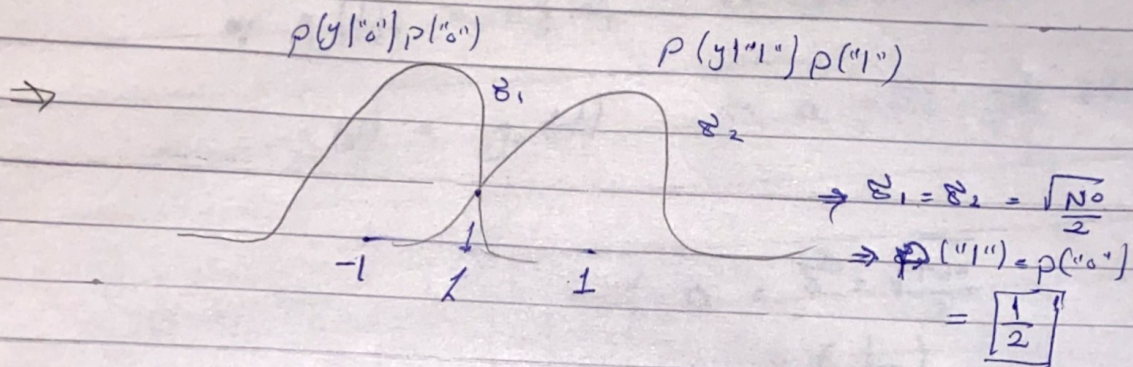 p(y|"0") p("0")
P(y|"1") p("1")
⇒
σ₁
σ₂
→ σ₁ = σ₂ = √N0/2
-1 1 1
⇒ p("1") = p("0")
= 1/2